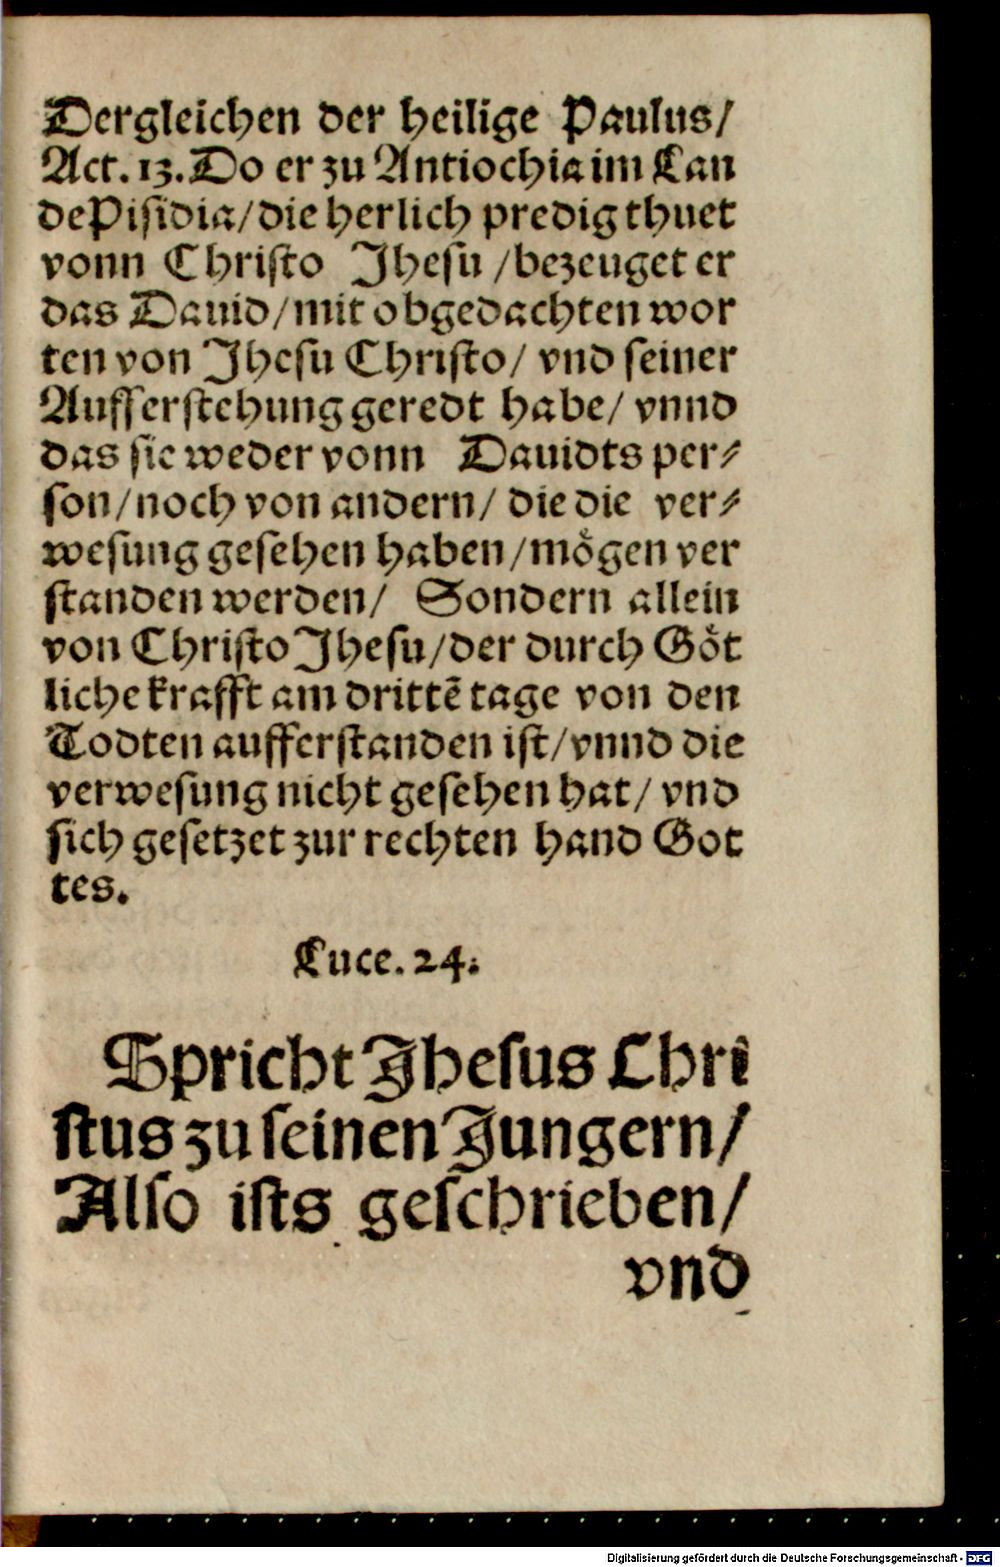 Dergleichen der heilige Paulus/
Act. 13. Do er zu Antiochia im Lan
de Pisidia/ die herlich predig thuet
vonn Christo Jhesu /bezeuget er
das Dauid/ mit obgedachten wor
ten von Jhesu Christo/ vnd seiner
Aufferstehung geredt habe/ vnnd
das sie weder vonn Dauidts per⸗
son/ noch von andern/ die die ver⸗
wesung gesehen haben/ moͤgen ver
standen werden/ Sondern allein
von Christo Jhesu/ der durch Goͤt
liche krafft am drittē tage von den
Todten aufferstanden ist/ vnnd die
verwesung nicht gesehen hat/ vnd
sich gesetzet zur rechten hand Got
tes.
Luce. 24.
Spricht Jhesus Chri
stus zu seinen Jungern/
Also ists geschrieben/
vnd
Digitalisierung gefördert durch die Deutsche Forschungsgemeinschaft - DFG